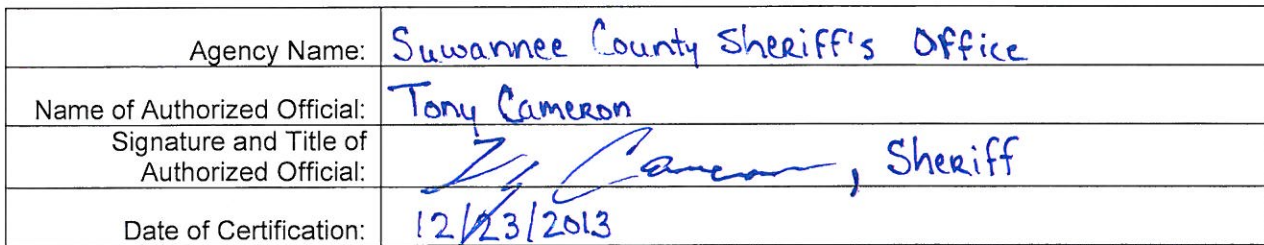 Agency Name: Suwannee County Sheriff's Office
Name of Authorized Official: Tony Cameron
Signature and Title of
Authorized Official: Tony Cameron, Sheriff
Date of Certification: 12/23/2013